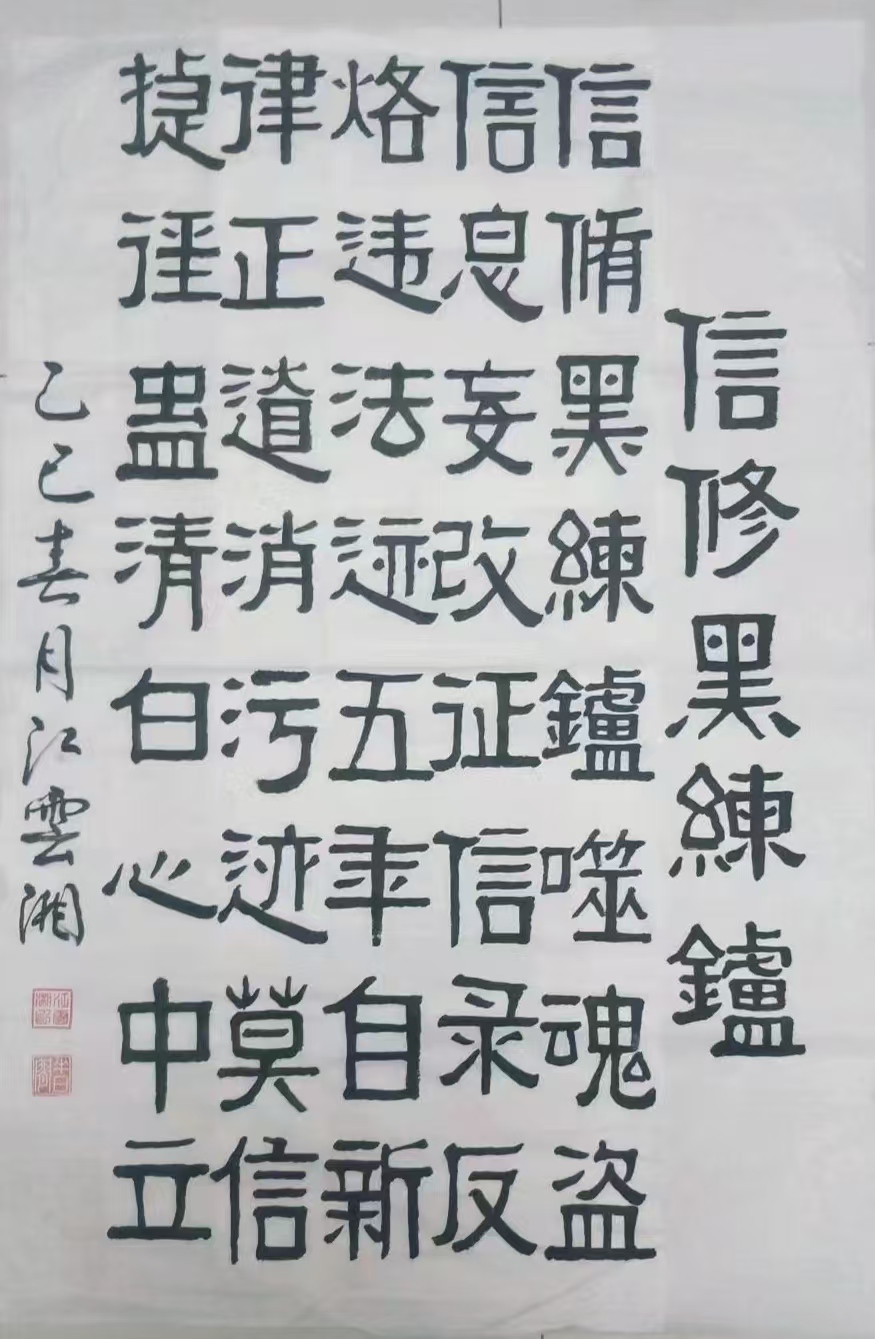 信修黑練鑪
信脩黑練鑪噬魂盗
信息妄改征信录反
烙违法迹五年自新
律正道消污迹莫信
捷徑蛊清白心中立
乙巳春月江雲湘